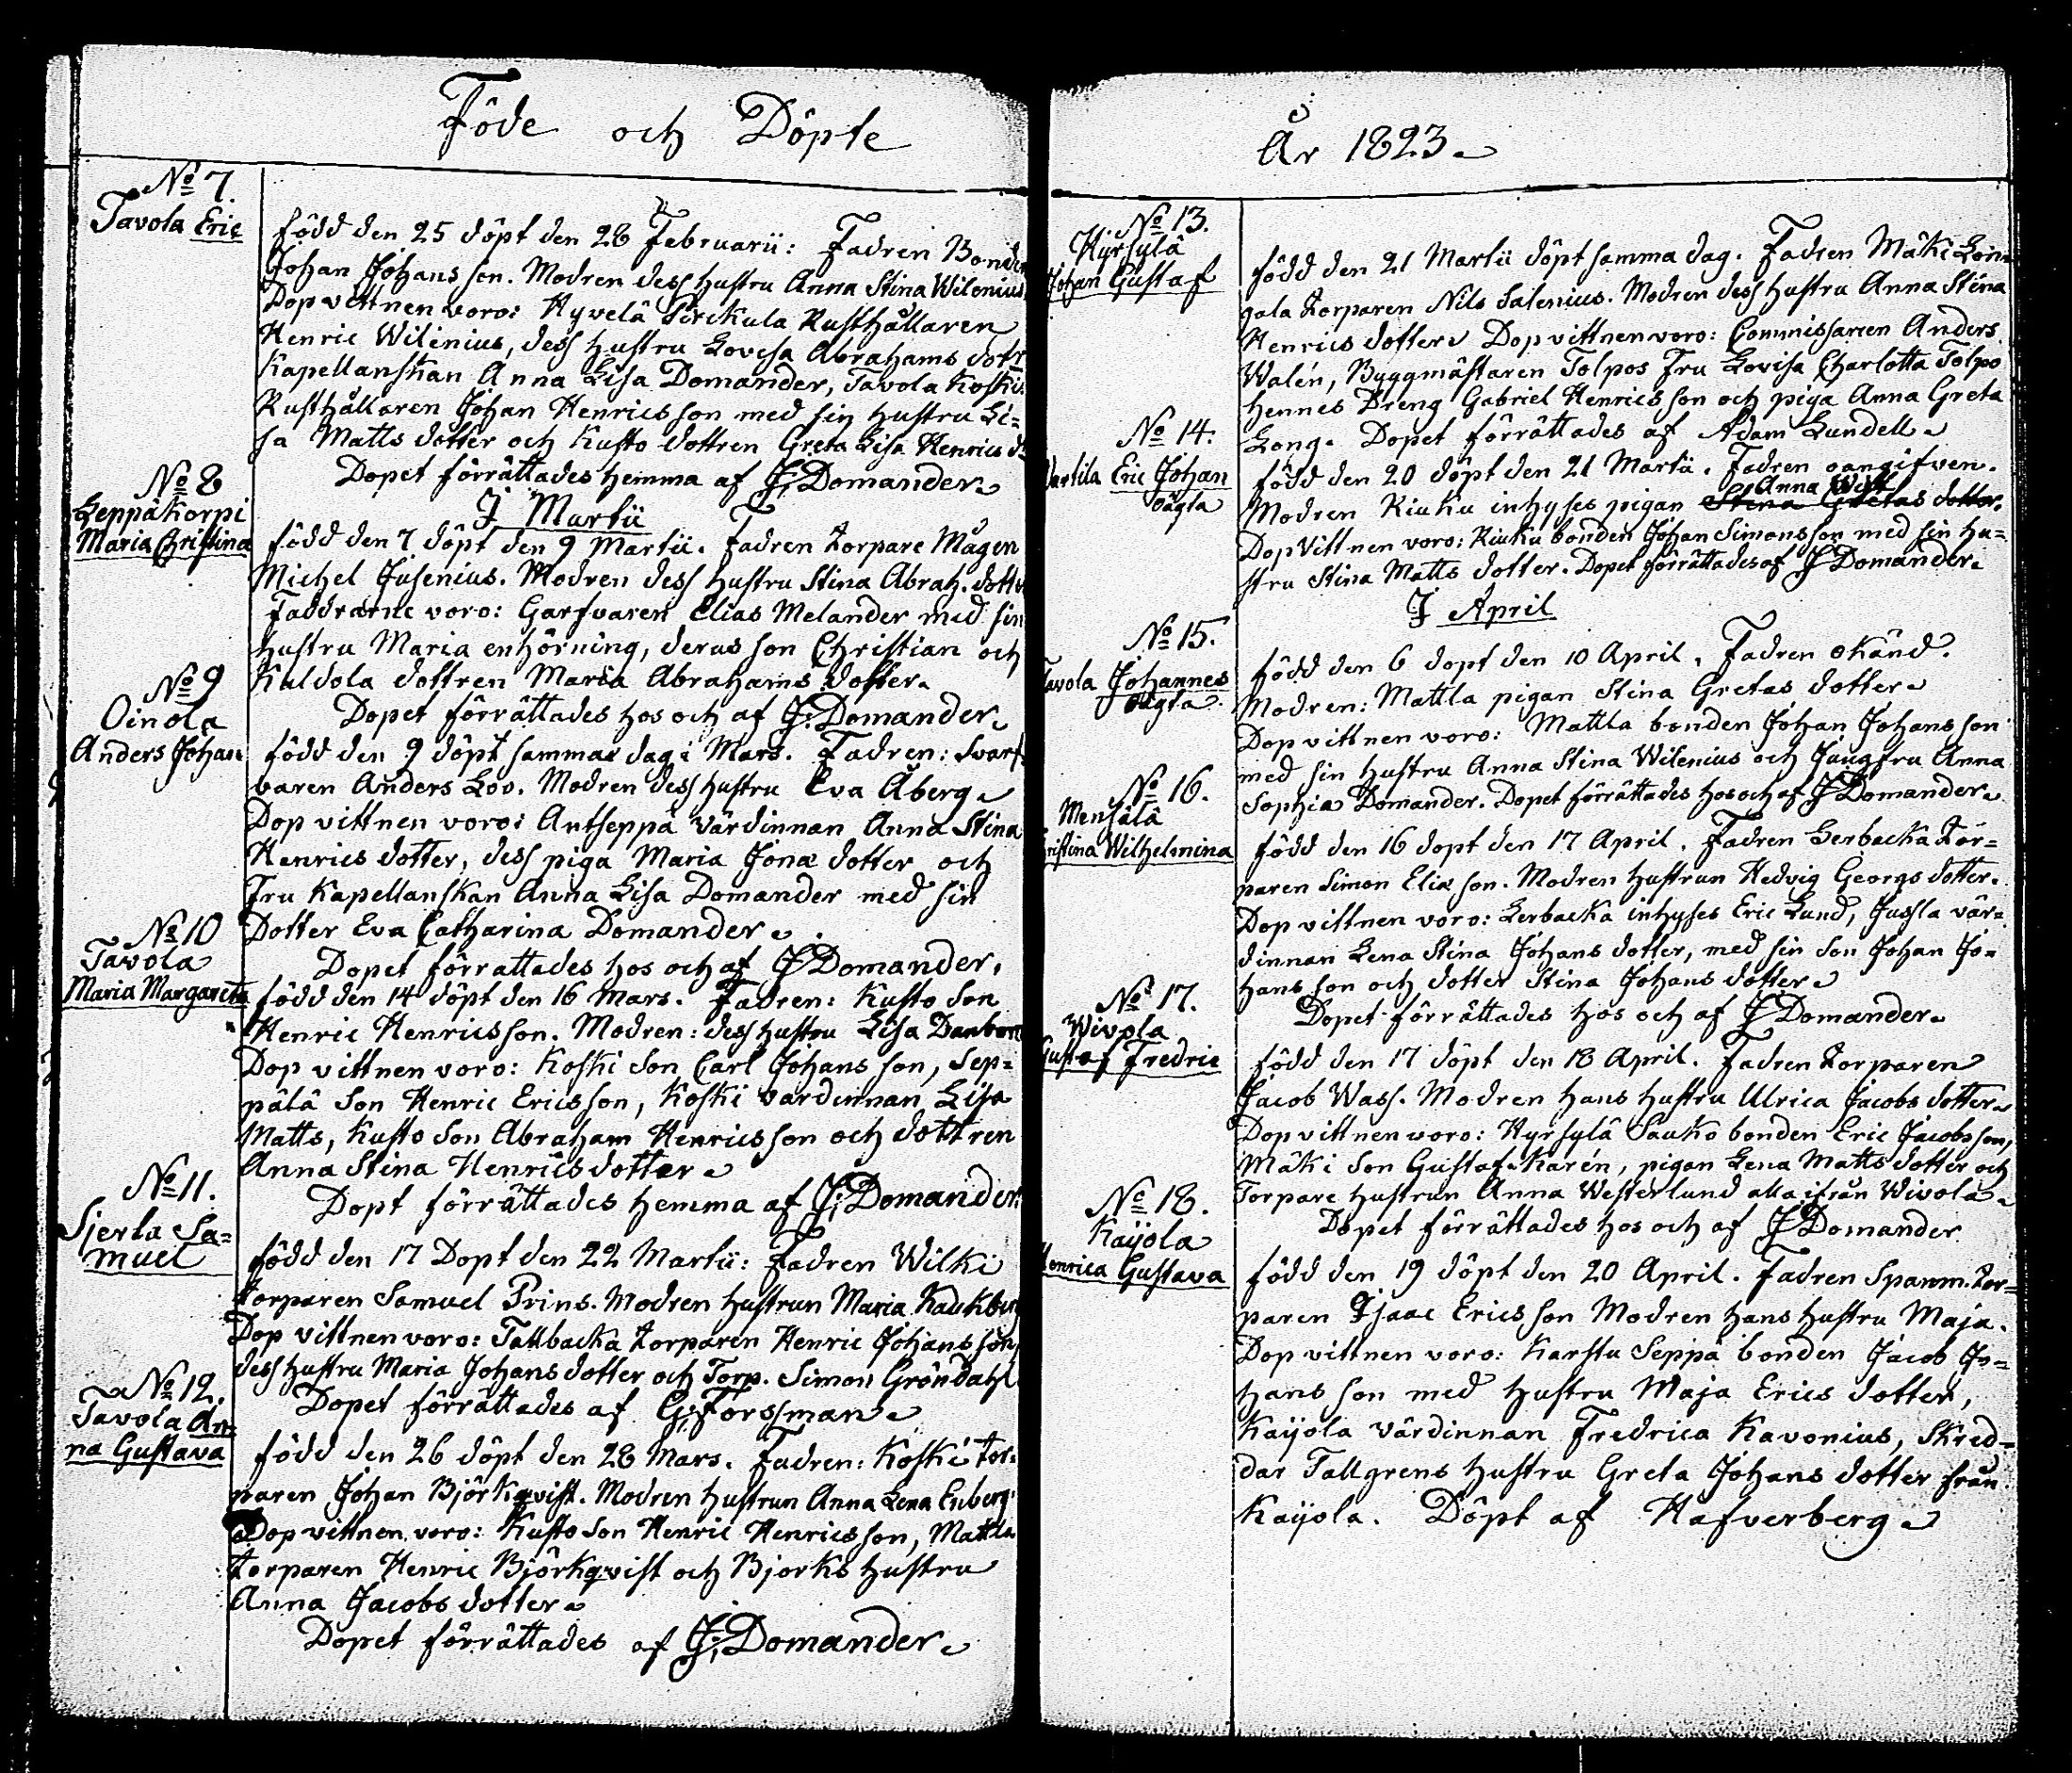 Föde och Döpte
No 7.
Tavola Eric
född den 25 döpt den 28 Februarii: Fadren Bonden
Johan Johans son. Modren dess hustru Anna Stina Wilenius
Dop vittnen voro: Hyvelä Sirckula Rusthållaren
Henric Wilenius, dess hustru Lovisa Abrahams dottr
Kapellanskan Anna Lisa Domander, Tavola Koski
Rusthållaren Johan Henrics son med sin hustru Li=
sa Matts dotter och Kusto dottren Greta Lisa Henrics d:
Dopet förrättades hemma af J: Domander
I Martii
No 8
Leppäkorpi
Maria Christina
född den 7 döpt den 9 Martii. Fadren torpare Mågen
Michel Jusenius. Modren dess hustru Stina Abrah. dotter
Faddrarne voro: Garfvaren Elias Melander med sin
hustru Maria enhörning, deras son Christian och
Kaldola dottren Maria Abrahams dotter.
Dopet förrättades hos och af J: Domander
No 9
Oinola
Anders Johan
född den 9 döpt samma dag i Mars. Fadren: Svarf=
varen Anders Loo. Modren dess hustru Eva Åberg
Dop vittnen voro: Antseppä värdinnan Anna Stina
Henrics dotter, dess piga Maria Jonæ dotter och
Fru Kapellanskan Anna Lisa Domander med sin
Dotter Eva Catharina Domander.
Dopet förrättades hos och af J Domander,
No 10
Tavola
Maria Margareta
född den 14 döpt den 16 Mars. Fadren: Kusto Son
Henric Henricsson. Modren: dess hustru Lisa
Dop vittnen voro: Koski Son Carl Johans son, Sep=
pälä Son Henric Ericsson, Koski vardinnan Lisa
Matts, Kusto Son Abraham Henricsson och dottren
Anna Stina Henrics dotter
Dopt förrättades hemma af J: Domander
No 11.
Sjerla Sa=
muel
född den 17 Dopt den 22 Martii: Fadren Wilki
torparen Samuel Prins. Modren hustrun Maria Kaukberg
Dop vittnen voro: Tallbacka torparen Henric Johansson
dess hustru Maria Johans dotter och Torp. Simon Gröndahl
Dopet förrättades af G: Forssman
No 12.
Tavola An=
na Gustava
född den 26 döpt den 28 Mars. Fadren: Koski tor=
paren Johan Björkqvist. Modren hustrun Anna Lena Enberg
Dop vittnen voro: Kusto Son Henric Henricsson, Mattla
torparen Henric Björkqvist och Bjorks hustru
Anna Jacobs dotter
Dopet förrättades af J: Domander
År 1823
No 13.
Hyrsylä
Johan Gustaf
född den 21 Martii döpt samma dag. Fadren Mäki Lon=
gala torparen Nils Salenius. Modren dess hustru Anna Stina
Henrics dotter Dop vittnen voro: Commissarien Anders
Walén, Byggmästaren Tolpos Fru Lovisa Charlotta Tolpo
hennes Dreng Gabriel Henrics son och piga Anna Greta
Long. Dopet förrättades af Adam Lundell
No 14.
Eric Johan
oägta
född den 20 döpt den 21 Martii. Fadren oangifven.
Anna
Modren Kiuku inhyses pigan Stina Gretas dotter.
Dop Vittnen voro: Kiuku bonden Johan Simonsson med sin hu=
stru Stina Matts dotter. Dopet förrättades af J Domander
I April
No 15.
Tavola Johannes
oägta
född den 6 dopt den 10 April, Fadren okänd.
Modren: Mattla pigan Stina Gretas dotter
Dop vittnen voro: Mattla bonden Johan Johans son
med sin hustru Anna Stina Wilenius och Jungfru Anna
Sophia Domander. Dopet förrättades hos och af J Domander
No 16.
Mensälä
Christina Wilhelmina
född den 16 dopt den 17 April. Fadren Lerbacka tor=
paren Simon Eliæ son. Modren hustrun Hedvig Georgs dotter.
Dop vittnen voro: Lerbacka inhyses Eric Lund, Jussla vär=
dinnan Lena Stina Johans dotter, med sin Son Johan Jo=
hans son och dotter Stina Johans dotter
Dopet förrättades hos och af J Domander
No 17.
Wivola
Gustaf Fredric
född den 17 döpt den 18 April. Fadren torparen
Jacob Wass. Modren hans hustru Ulrica Jacobs dotter
Dop vittnen voro: Hyrsylä Sauko bonden Eric Jacobsson,
Mäki Son Gustaf Karén, pigan Lena Matts dotter och
Torpare hustrun Anna Westerlund alla ifrån Wivola
Dopet förrättades hos och af J Domander
No 18.
Kaijola
Henrica Gustava
född den 19 döpt den 20 April. Fadren Spanm. tor=
paren Isaac Erics son Modren hans hustru Maja.
Dop vittnen voro: Karstu Seppä bonden Jacob Jo=
hans son med hustru Maja Erics dotter,
Kaijola värdinnan Fredrica Kavonius, Skred=
dar Tallgrens hustru Greta Johans dotter från
Kaijola. Döpt af Hafverberg